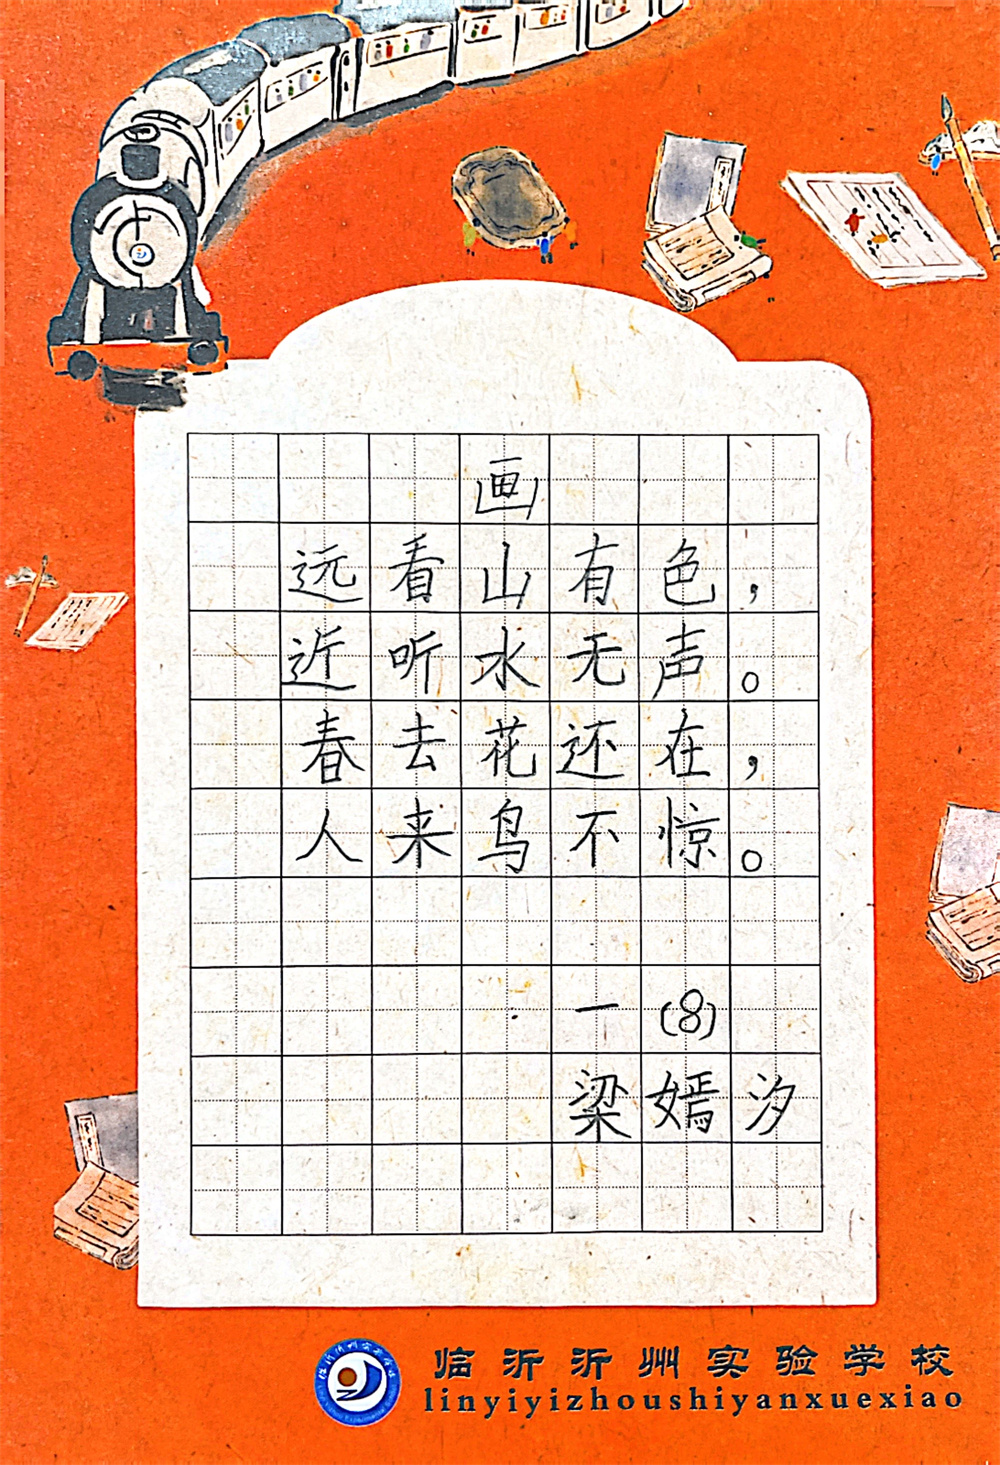 画
远看山有色，
近听水无声。
春去花还在，
人来鸟不惊。
一(8)
梁嫣汐
临沂沂州实验学校
linyiyizhoushiyanxuexiao